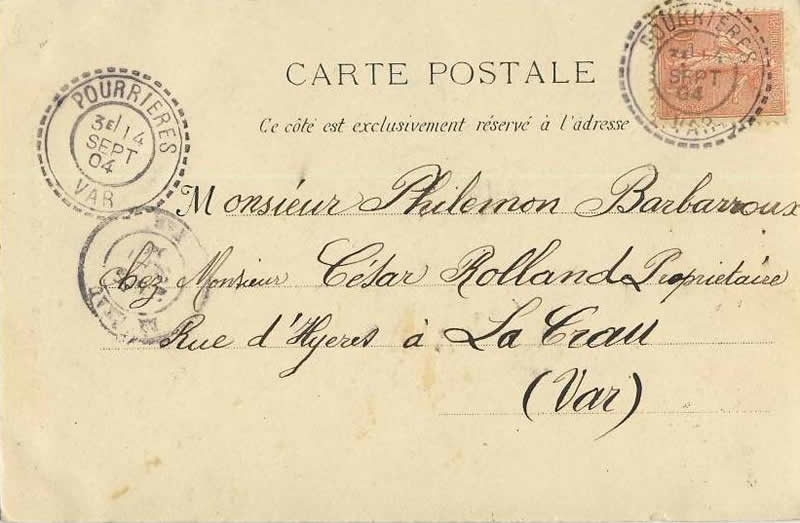 CARTE POSTALE
Ce côté est exclusivement réservé à l'adresse
POURRIERES
3E/14
SEPT
04
VAR
POURRIERES
3E/14
SEPT
04
VAR
Monsieur Philemon Barbarroux
chez Monsieur César Rolland Propriétaire
Rue d'Hyeres à La Crau
(Var)